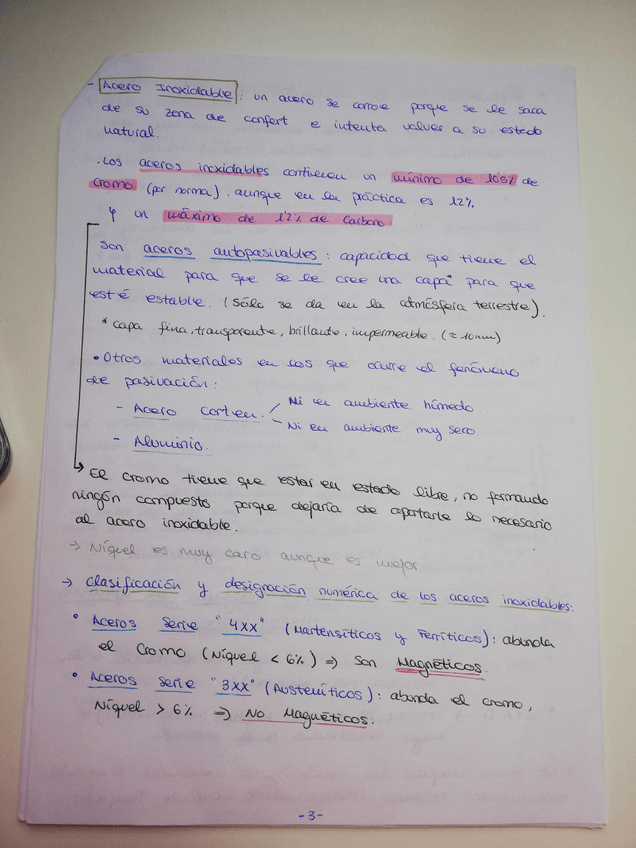 - Acero Inoxidable: un acero se corroe porque se le saca
de su zona de confort e intenta volver a su estado
natural.
. Los aceros inoxidables contienen un mínimo de 10'5% de
cromo (por norma). aunque en la práctica es 12%.
y un máximo de 1'2% de carbono
Son aceros autopasivables: capacidad que tiene el
material para que se le cree una capa* para que
esté estable. (Sólo se da en la atmósfera terrestre).
* capa fina, transparente, brillante, impermeable. (≈ 10nm)
• Otros materiales en los que ocurre el fenómeno
de pasivación:
- Acero corten. Ni en ambiente húmedo.
Ni en ambiente muy seco
- Aluminio.
→ El cromo tiene que estar en estado libre, no formando
ningún compuesto porque dejaría de aportarle lo necesario
al acero inoxidable.
→ Níquel es muy caro aunque es mejor
→ Clasificación y designación numérica de los aceros inoxidables:
• Aceros Serie "4XX" (Martensíticos y Ferríticos): abunda
el Cromo (Níquel < 6%) ⇒ Son Magnéticos.
• Aceros Serie "3XX" (Austeníticos): abunda el cromo,
Níquel > 6% ⇒ No Magnéticos.
- 3 -